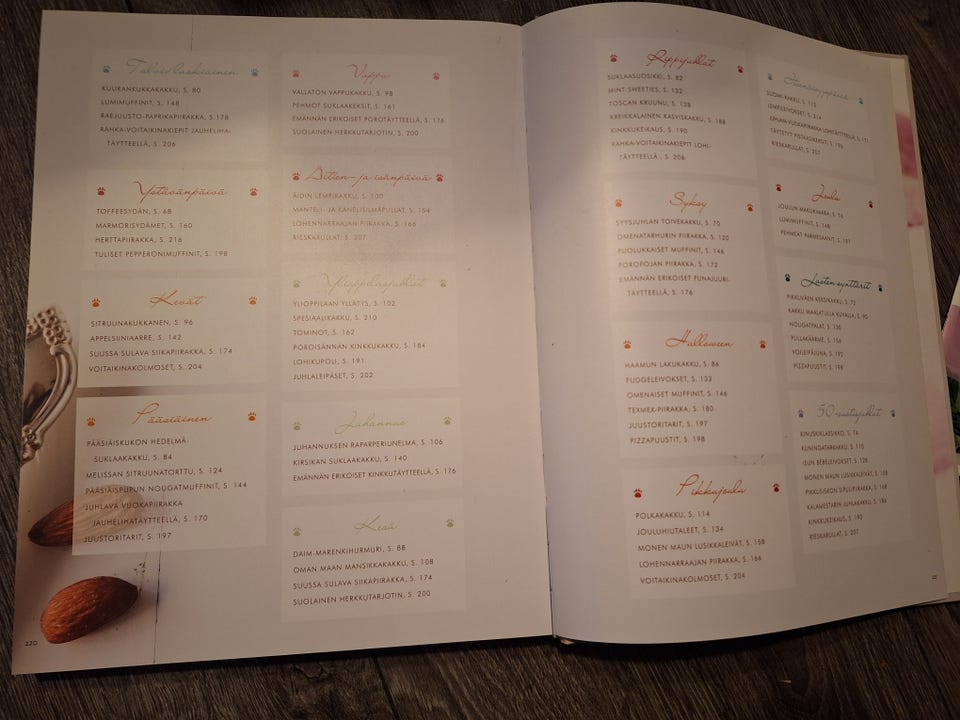 Talvi/laskiainen
KUURANKUKKAKAKKU, S. 80
LUMIMUFFINIT, S. 148
RAEJUUSTO-PAPRIKAPIIRAKKA, S.178
RAHKA-VOITAIKINAKIEPIT JAUHELIHA-
TÄYTTEELLÄ, S. 206
Ystävänpäivä
TOFFEESYDÄN, S. 68
MARMORISYDÄMET, S. 160
HERTTAPIIRAKKA, S. 216
TULISET PEPPERONIMUFFINIT, S. 198
Kevät
SITRUUNAKUKKANEN, S. 96
APPELSIINIAARRE, S. 142
SUUSSA SULAVA SIIKAPIIRAKKA, S. 174
VOITAIKINAKOLMOSET, S. 204
Pääsiäinen
PÄÄSIÄISKUKON HEDELMÄ-
SUKLAAKAKKU, S. 84
MELISSAN SITRUUNATORTTU, S. 124
PÄÄSIÄISPUPUN NOUGATMUFFINIT, S. 144
JUHLAVA VUOKAPIIRAKKA
JAUHELIHATÄYTTEELLÄ, S. 170
JUUSTORITARIT, S. 197
220
Vappu
VALLATON VAPPUKAKKU, S. 98
PEHMOT SUKLAAKEKSIT, S. 161
EMÄNNÄN ERIKOISET POROTÄYTTEELLÄ, S. 176
SUOLAINEN HERKKUTARJOTIN, S. 200
Äitien- ja isänpäivä
ÄIDIN LEMPIKAKKU, S. 100
MANTELI- JA KANELISILMÄPULLAT, S. 154
LOHENNARRAAJAN PIIRAKKA, S. 166
RIESKARULLAT, S. 207
Ylioppilasjuhlat
YLIOPPILAAN YLLÄTYS, S. 102
SPESIAALIKAKKU, S. 210
TOMINOT, S. 162
POROISÄNNÄN KINKKUKAKKU, S. 184
LOHIKUPOLI, S. 191
JUHLALEIPÄSET, S. 202
Juhannus
JUHANNUKSEN RAPARPERIUNELMA, S. 106
KIRSIKAN SUKLAAKAKKU, S. 140
EMÄNNÄN ERIKOISET KINKKUTÄYTTEELLÄ, S. 176
Kesä
DAIM-MARENKIHURMURI, S. 88
OMAN MAAN MANSIKKAKAKKU, S. 108
SUUSSA SULAVA SIIKAPIIRAKKA, S. 174
SUOLAINEN HERKKUTARJOTIN, S. 200
Rippijuhlat
SUKLAASUOSIKKI, S. 82
MINT SWEETIES, S. 132
TOSCAN KRUUNU, S. 138
KREIKKALAINEN KASVISKAKKU, S. 188
KINKKUKEIKAUS, S. 190
RAHKA-VOITAIKINAKIEPIT LOHI-
TÄYTTEELLÄ , S. 206
Syksy
SYYSJUHLAN TOIVEKAKKU, S. 70
OMENATARHURIN PIIRAKKA, S. 120
PUOLUKKAISET MUFFINIT, S. 146
POROPOJAN PIIRAKKA, S. 172
EMÄNNÄN ERIKOISET PUNAJUURI-
TÄYTTEELLÄ, S. 176
Halloween
HAAMUN LAKUKAKKU, S. 86
PUDGELEIVOKSET, S. 133
OMENAISET MUFFINIT, S. 146
TEXMEX-PIIRAKKA, S. 180
JUUSTORITARIT, S. 197
PIZZAPUUSTIT, S. 198
Pikkujoulu
POLKAKAKKU, S. 114
JOULUHIUTALEET, S. 134
MONEN MAUN LUSIKKALEIVÄT, S. 158
LOHENNARRAAJAN PIIRAKKA, S. 166
VOITAIKINAKOLMOSET, S. 204
Itsenäisyyspäivä
SUOMI-KAKKU, S. 112
LEMPILEIVOKSET, S. 214
JUHLAVA VUOKAPIIRAKKA LOHITÄYTTEELLÄ, S. 171
TÄYTETYT PISTAASIKEKSIT, S. 156
RIESKARULLAT, S. 207
Joulu
JOULUN MAKUKIMARA, S. 76
LUMIMUFFINIT, S. 148
PEHMEÄT PARMESAANIT, S. 181
Lasten synttärit
PIKKUVÄEN KEKSIKAKKU, S. 72
KAKKU MAALATULLA KUVALLA, S. 90
NOUGATPALAT, S. 136
PULLAMÄÄRME, S. 156
VOILEIPÄJUNA, S. 192
PIZZAPUUSTIT, S. 198
50-vuotisjuhlat
KINUSKIKLASSIKKO, S. 74
KUNINGATARKAKKU, S. 110
ISUN BEBELEIVOKSET, S. 128
MONEN MAUN LUSIKKALEIVÄT, S. 158
PIKKUSISKON SIPULIPIIRAKKA, S. 168
KALAMESTARIN JUHLAKAKKU, S. 186
KINKKUKEIKAUS, S. 190
RIESKARULLAT, S. 207